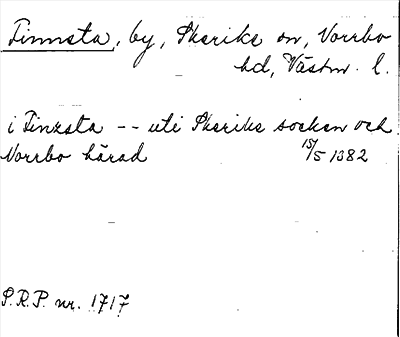 Finnsta, by, Skeriks sn, Norrbo
hd, Västm. l.
i Finzsta -- uti Skeriks socken och
Norrbo härad 15/5 1382
S.R.P. nr. 1717